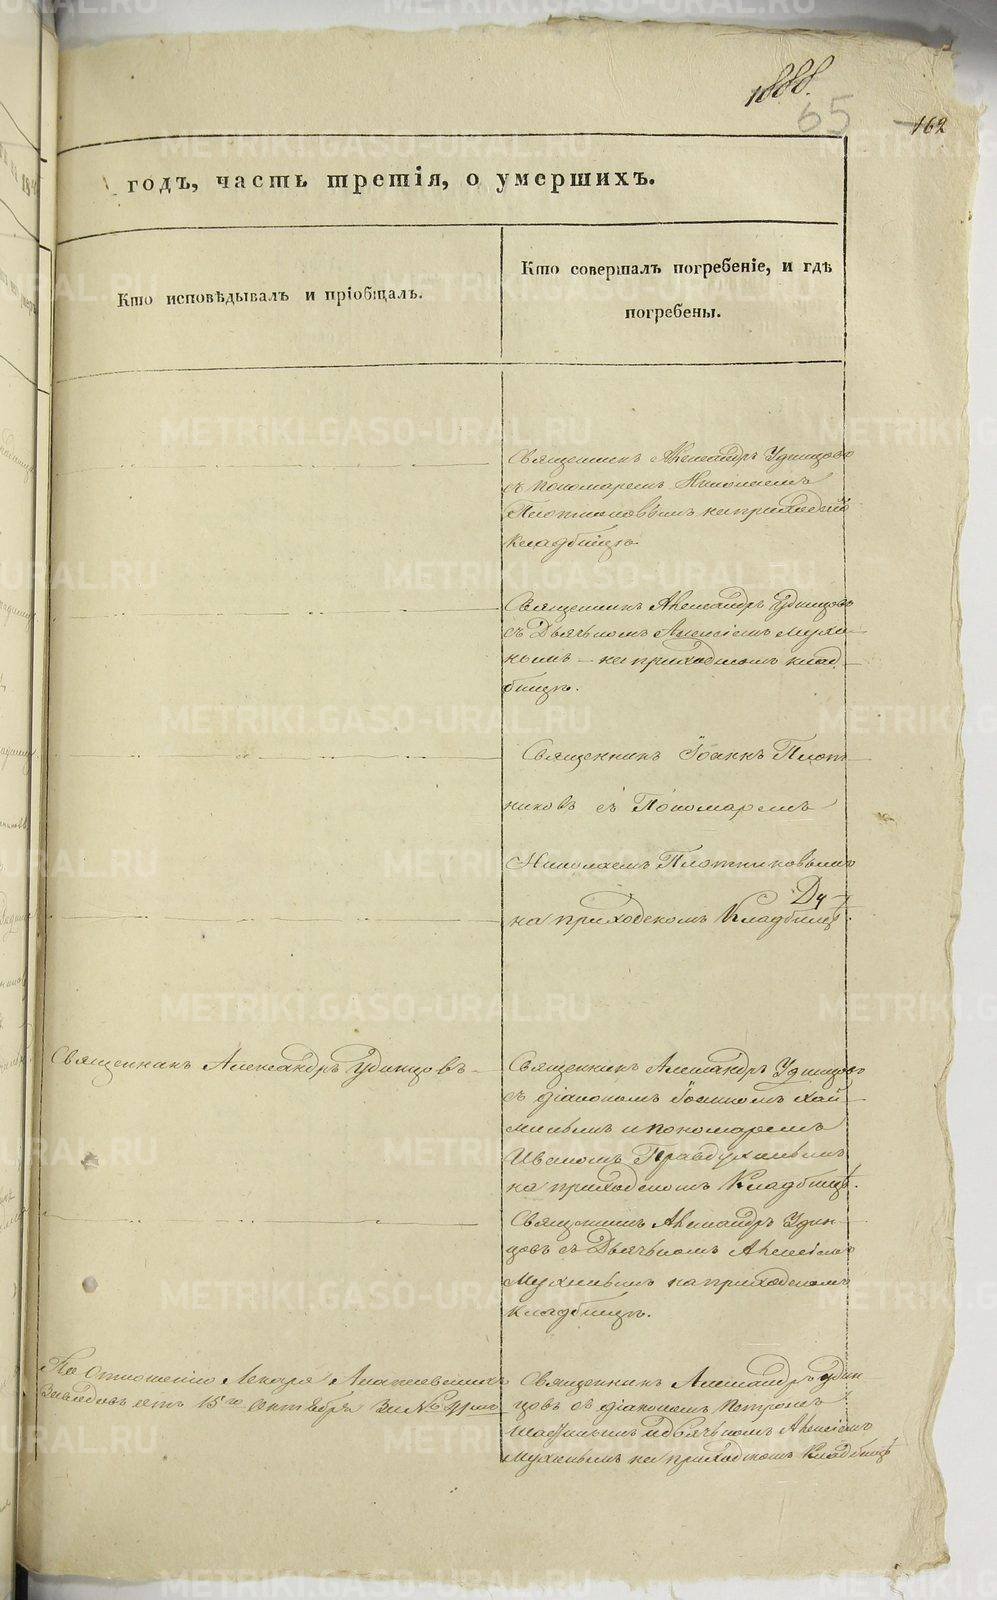 1888.
65
162
годъ, часть третія, о умершихъ.
Кто исповѣдывалъ и пріобщалъ.
Кто совершалъ погребеніе, и гдѣ
погребены.
Священникъ Александръ Удинцовъ
съ пономаремъ Николаемъ
Плотниковымъ на приходской
кладбищѣ.
Священникъ Александръ Удинцовъ
съ Дьячкомъ Алексіемъ Мухи-
нымъ – на приходскомъ клад-
бищѣ.
Священникъ Іоаннъ Плот-
никовъ съ Пономаремъ
Николаемъ Плотниковымъ
на приходскомъ Кладбищѣ.
Священникъ Александръ Удинцовъ
Священникъ Александръ Удинцовъ
съ діакономъ Іоанномъ
и пономаремъ
Иваномъ Правдухинымъ
на приходскомъ Кладбищѣ.
Священникъ Александръ Удин-
цовъ съ Дьячкомъ Алексіемъ
Мухинымъ на приходскомъ
кладбищѣ.
По Отношенію Лекаря Алапаевскихъ
Заводовъ отъ 15го Сентября За №
Священникъ Александръ Удин-
цовъ съ діакономъ Петромъ
и дьячкомъ Алексіемъ
Мухинымъ на приходскомъ Кладбищѣ
METRIKI.GASO-URAL.RU